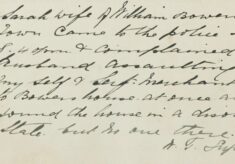 Sarah wife of William Bowen
Town came to the police
& complained
Husband assaulting
my self & Serf. Merchant
to Bowers house at once a
found the house in a disor
State. but no one there